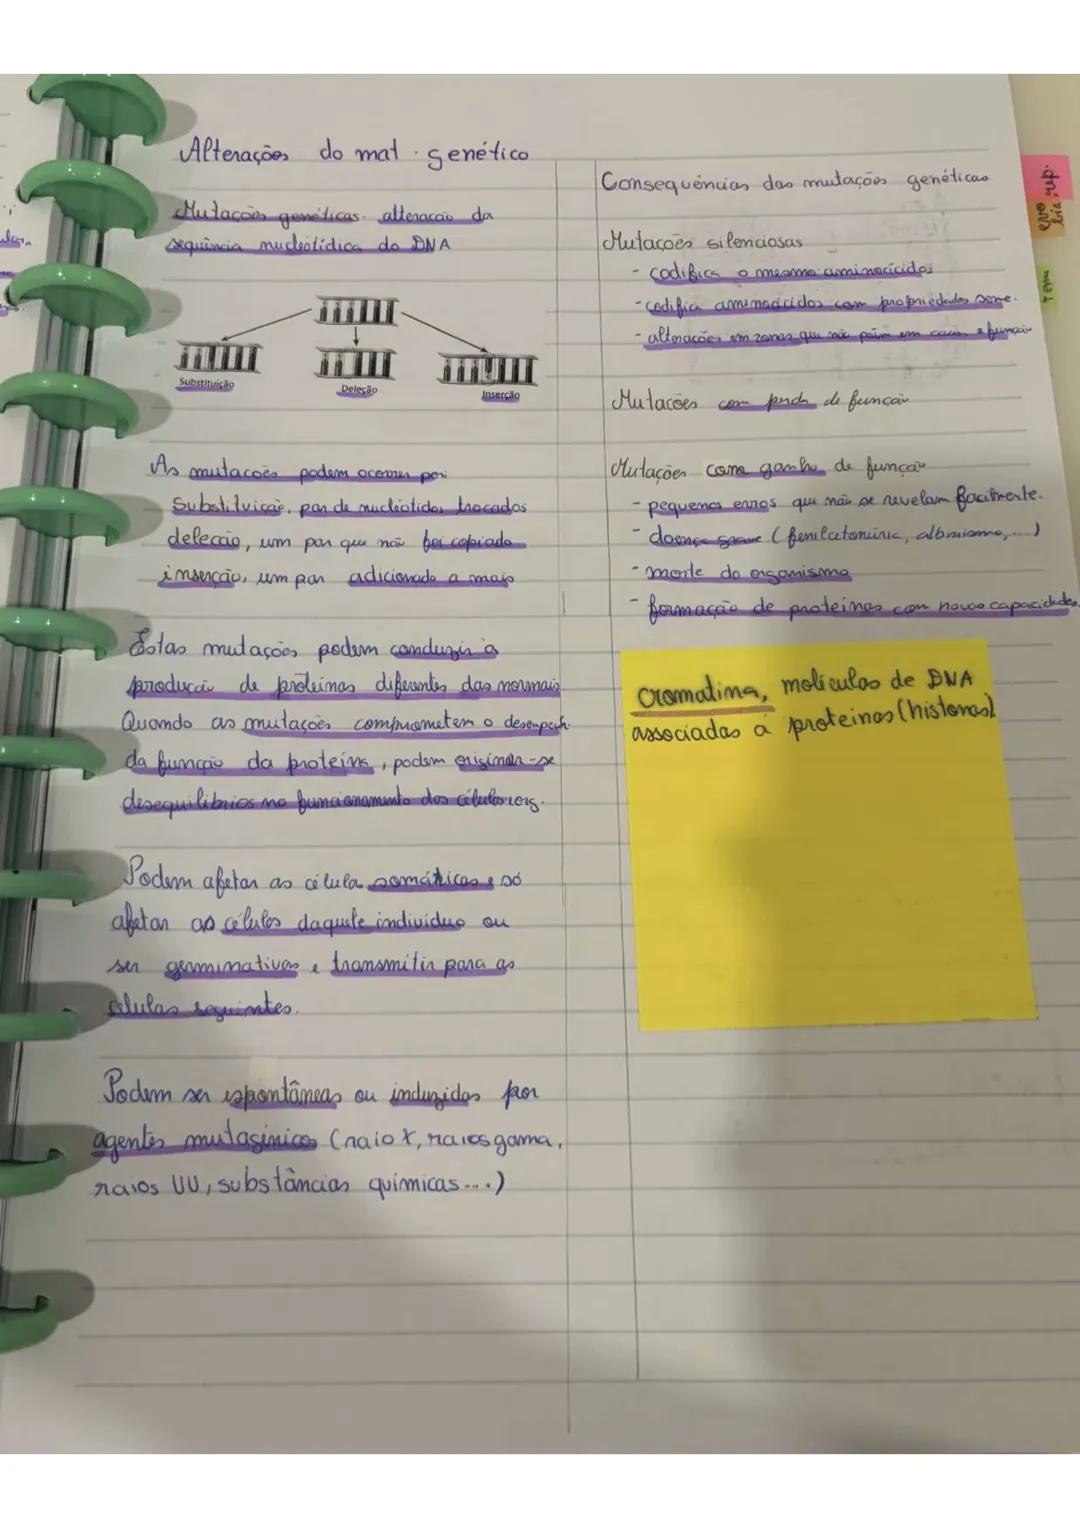 Alterações do mat. genético
Mutações genéticas. alteração da
sequência nucleotídica do DNA
Substituição
Deleção
Inserção
As mutações podem ocorrer por:
Substituição, par de nucleótidos trocados
deleção, um par que não foi copiado
inserção, um par adicionado a mais
Estas mutações podem conduzir à
produção de proteínas diferentes das normais.
Quando as mutações comprometem o desempenh.
da função da proteína, podem originar-se
desequilíbrios no funcionamento das células/org.
Podem afetar as célula somáticas e só
afetar as células daquele individuo ou
ser germinativas e transmitir para as
células seguintes.
Podem ser espontâneas ou induzidas por
agentes mutagénicos (raio X, raios gama,
raios UV, substâncias químicas....)
Consequências das mutações genéticas
Mutações silenciosas
- codifica o mesmo aminoácidos
- codifica aminoácidos com propriedades seme.
- alterações em zonas que não põem em causa a função
Mutações com perda de função
Mutações com ganho de função
- pequenos erros que não se revelam facilmente.
- doença grave (fenilcetonúria, albinismo,...)
- morte do organismo
- formação de proteínas com novas capacidades.
cromatina, moléculas de DNA
associadas á proteínas (histonas)
evo
bio.
rup.
tem